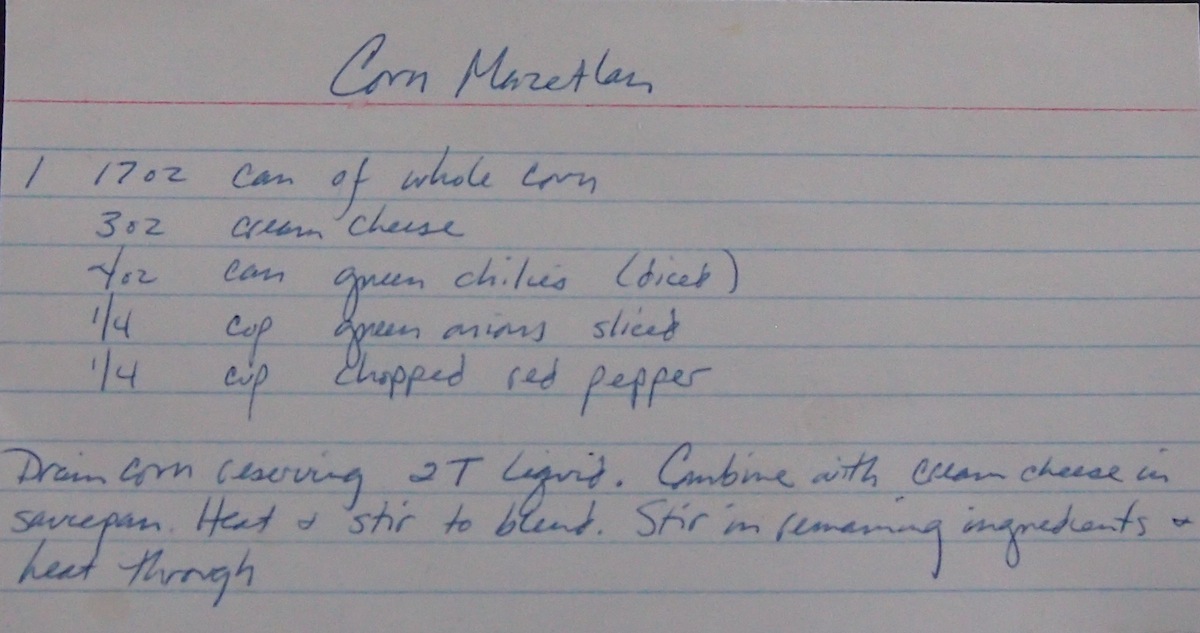 Corn Mazetlan
1 17oz can of whole corn
3oz cream cheese
4oz can green chilies (diced)
1/4 cup green onions sliced
1/4 cup chopped red pepper
Drain corn reserving 2T liquid. Combine with cream cheese in
saucepan. Heat & stir to blend. Stir in remaining ingredients &
heat through